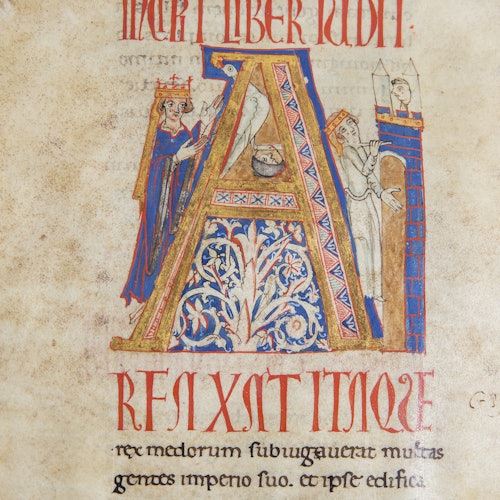 LIBER IUDIT.
A
RFAXAT ITAQUE
rex medorum subiugauerat multas
gentes imperio suo. et ipse edifica